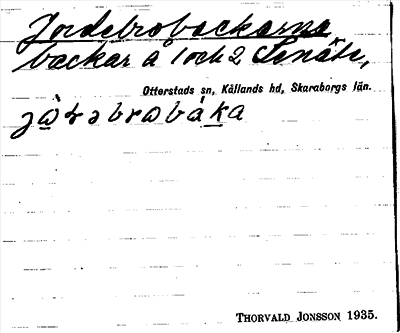 Jordebrobackarna
backar å 1 och 2 Senäte,
Otterstads sn, Kållands hd, Skaraborgs län.
THORVALD JONSSON 1935.